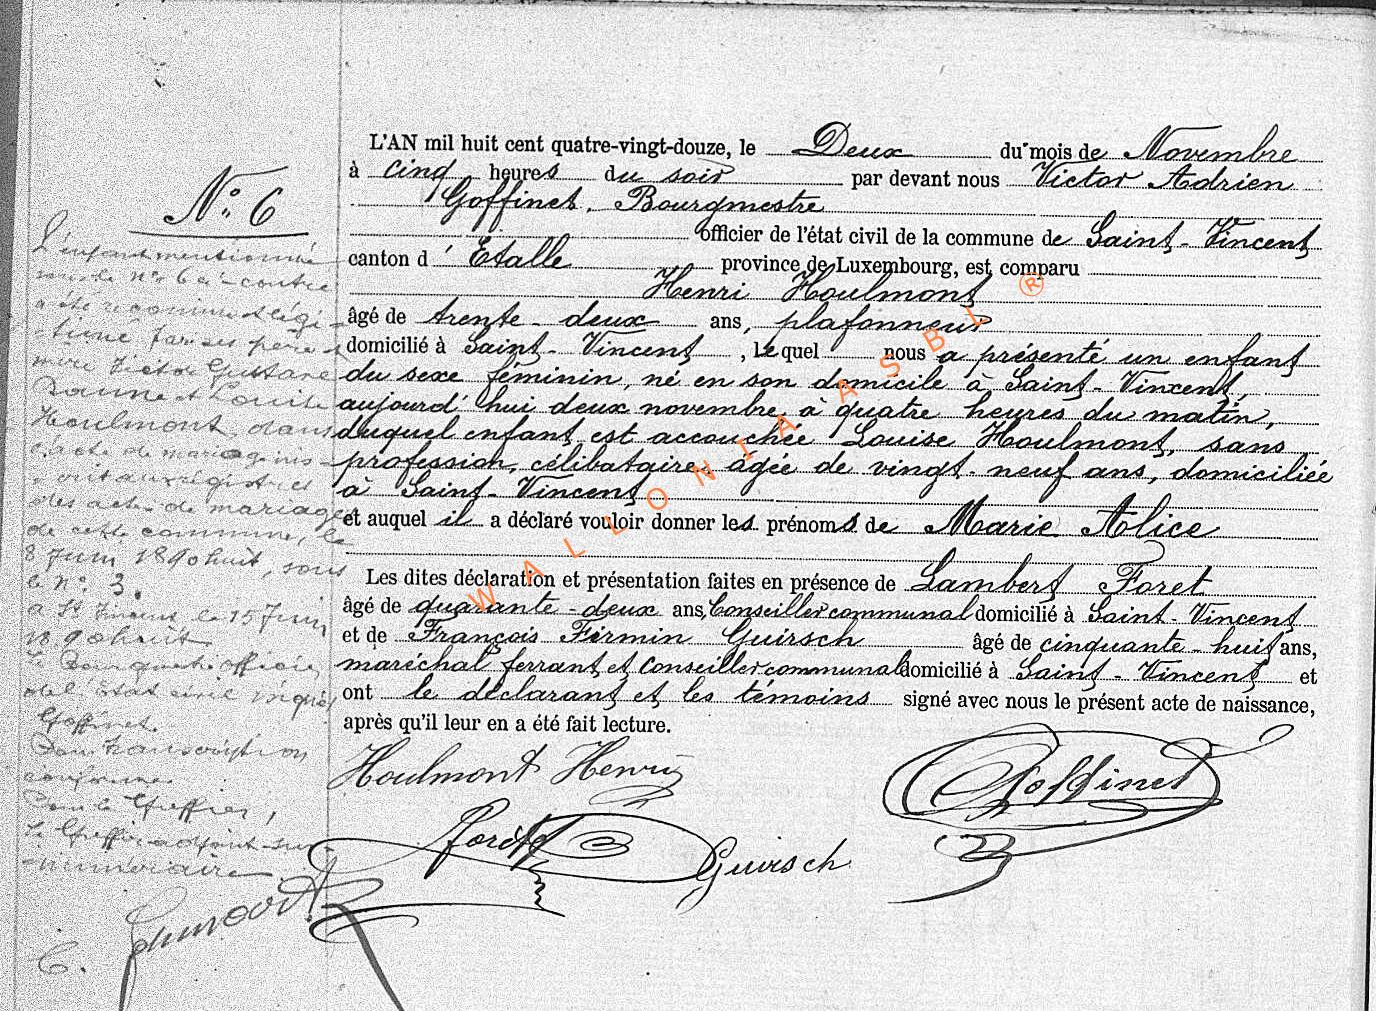 N° 6
L'enfant mentionné
sur le n° 6 ci-contre
a été reconnu et légi-
-timé par ses père et
mère Victor Gustave
et Louise
Houlmont, dans
l'acte de mariage ins-
-crit aux registres
des actes de mariage
de cette commune, le
8 Juin 1890huit, sous
le n° 3.
A St Vincent, le 15 Juin
1890huit
officier
de l'Etat civil
Goffinet.
Pour transcription
conforme.
Pour le Greffier,
Le Greffier adjoint sur-
-numéraire
L'AN mil huit cent quatre-vingt-douze, le Deux du mois de Novembre
à cinq heures du soir par devant nous Victor Adrien
Goffinet, Bourgmestre
officier de l'état civil de la commune de Saint-Vincent
canton d'Etalle province de Luxembourg, est comparu
Henri Houlmont
âgé de trente-deux ans, plafonneur
domicilié à Saint-Vincent, lequel nous a présenté un enfant
du sexe féminin, né en son domicile à Saint-Vincent,
aujourd'hui deux novembre à quatre heures du matin,
duquel enfant est accouchée Louise Houlmont, sans
profession, célibataire, agée de vingt-neuf ans, domiciliée
à Saint-Vincent
et auquel il a déclaré vouloir donner les prénoms de Marie Alice
Les dites déclaration et présentation faites en présence de Lambert Foret
âgé de quarante-deux ans, Conseiller communal domicilié à Saint-Vincent
et de François Firmin Guirsch âgé de cinquante-huit ans,
maréchal ferrant et conseiller communal domicilié à Saint-Vincent et
ont le déclarant et les témoins signé avec nous le présent acte de naissance,
après qu'il leur en a été fait lecture.
Houlmont Henri
Goffinet
Forêt
Guirsch
WALLONIA ASBL ®